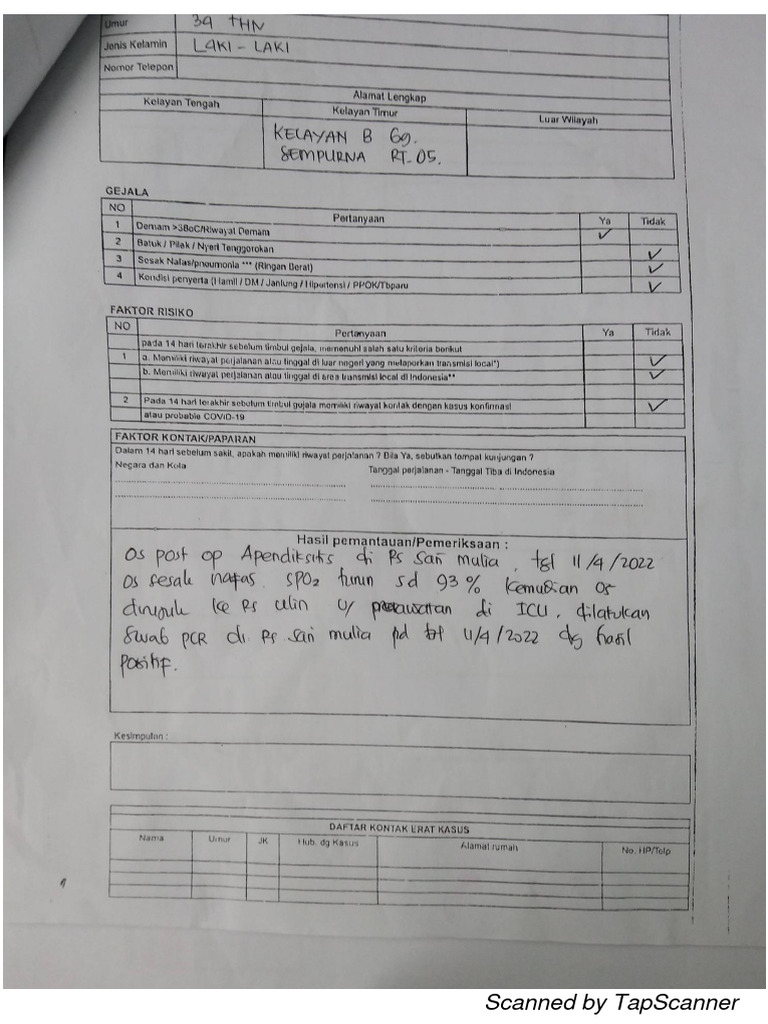 Umur 39 THN
Jenis Kelamin LAKI - LAKI
Nomor Telepon
Alamat Lengkap
Kelayan Tengah Kelayan Timur Luar Wilayah
KELAYAN B Gg.
SEMPURNA RT. 05.
GEJALA
NO Pertanyaan Ya Tidak
1 Demam >38oC/Riwayat Demam ✓
2 Batuk / Pilek / Nyeri Tenggorokan ✓
3 Sesak Nafas/pneumonia *** (Ringan Berat) ✓
4 Kondisi penyerta (Hamil / DM / Jantung / Hipertensi / PPOK/Tbparu ✓
FAKTOR RISIKO
NO Pertanyaan Ya Tidak
pada 14 hari terakhir sebelum timbul gejala, memenuhi salah satu kriteria berikut
1 a. Memiliki riwayat perjalanan atau tinggal di luar negeri yang melaporkan transmisi local*) ✓
b. Memiliki riwayat perjalanan atau tinggal di area transmisi local di Indonesia** ✓
2 Pada 14 hari terakhir sebelum timbul gejala memiliki riwayat kontak dengan kasus konfirmasi ✓
atau probable COVID-19
FAKTOR KONTAK/PAPARAN
Dalam 14 hari sebelum sakit, apakah memiliki riwayat perjalanan ? Bila Ya, sebutkan tempat kunjungan ?
Negara dan Kota Tanggal perjalanan - Tanggal Tiba di Indonesia
Hasil pemantauan/Pemeriksaan :
Os post op Apendiksitis di Rs Sari mulia, tgl 11/4/2022
Os sesak nafas. SPO2 turun sd 93% kemudian os
dirujuk ke Rs ulin u/ perawatan di ICU. dilakukan
Swab PCR di Rs Sari mulia pd tgl 11/4/2022 dg hasil
positif.
Kesimpulan :
DAFTAR KONTAK ERAT KASUS
Nama Umur JK Hub. dg Kasus Alamat rumah No. HP/Telp
Scanned by TapScanner